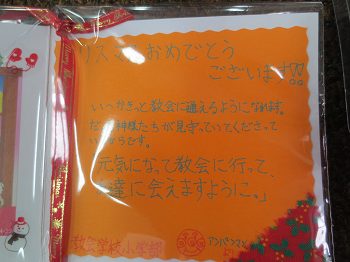 リスマスおめでとう
ございます!!
いつかきっと教会に通えるようになれます。
神様たちが見守っていてくださって
いるからです。
「元気になって教会に行って、
達に会えますように。」
教会学校小学部
アンパンマン